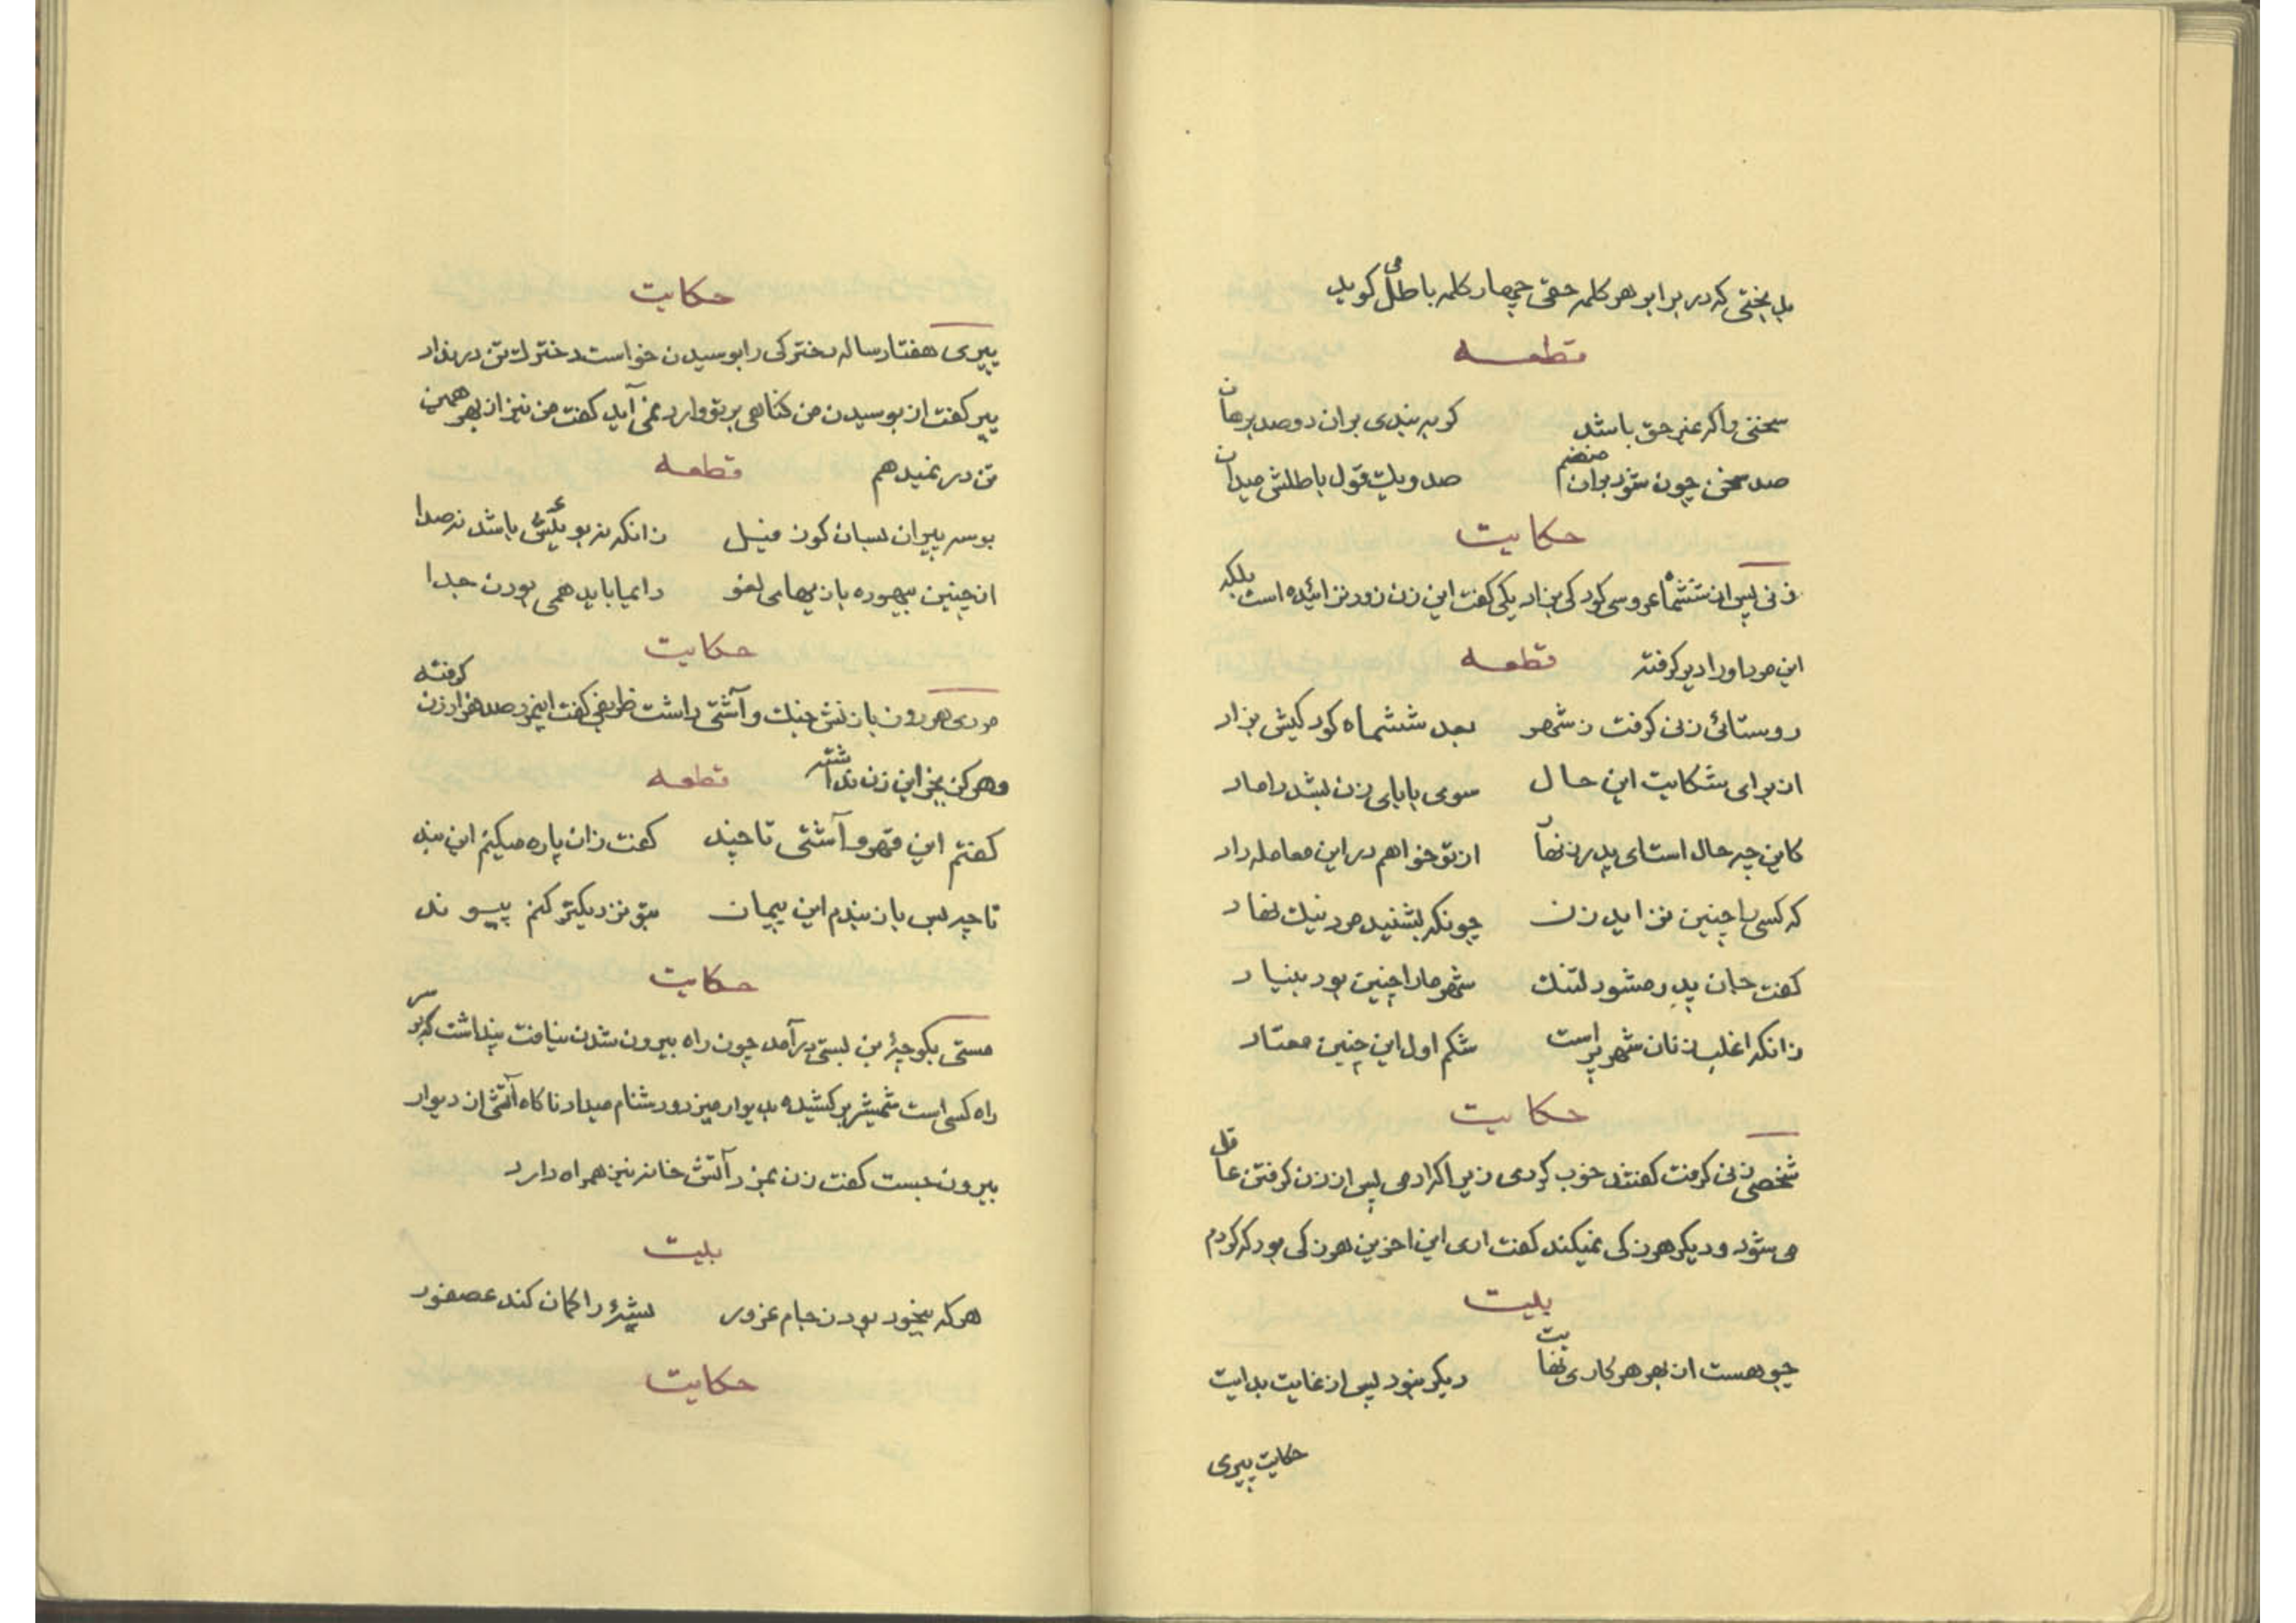 بدبختی که در برابر هر کلمه حقی چهار کلمه باطل می گوید
قطعه
سخنی را که غیر حق باشد گو ببندی بر آن دو صد برهان
صد سخن چون شود بر آن منضم صد و یک قول باطلش میدان
حکایت
زنی پس از ششماه عروسی کودکی بزاد یکی گفت این زن زود نزائیده است بلکه
این مرد او را دیر گرفته قطعه
روستائی زنی گرفت ز شهر بعد ششماه کودکیش بزاد
از برای شکایت این حال سوی بابای زن بشد داماد
کاین چه حال است ای پدر زنهار از تو خواهم در این معامله داد
که کسی با چنین نزاید زن چونکه بشنید مرد نیک نهاد
گفت جان پدر مشو دلتنگ شهر ما را چنین بود بنیاد
زانکه اغلب زنان شهر پر است شکم اول این چنین معتاد
حکایت
شخصی زنی گرفت گفتند خوب کردی زیرا که آدمی پس از زن گرفتن عاقل
می شود و دیگر هرزگی نمیکند گفت اری این اخرین هرزگی بود که کردم
بیت
چو هست از بهر هر کاری نهایت دیگر نبود پس از غایت بدایت
حکایت پیری
حکایت
پیری هفتاد ساله دخترکی را بوسیدن خواست دخترک تن در نداد
پیر گفت از بوسیدن من گناهی بر تو وارد نمی آید گفت من نیز از بهر همین
تن در نمیدهم قطعه
بوسه پیران بسان کون فیل زانکه نه بوئیش باشد نه صدا
از چنین بیهوده بازیهای لغو دایما باید همی بودن جدا
حکایت
مردی هر روز با زنش جنگ و آشتی داشت ظریفی گفت اینمرد صد هزار زن گرفته
و هرگز بجز این زن نداشته قطعه
گفتم این قهر و آشتی تا چند گفت زان پاره میکنم این بند
تا چه بس باز بندم این پیمان بتو نزدیکتر کنم پیوند
حکایت
مستی بکوچۀ بن بستی در آمد چون راه بیرون شدن نیافت پنداشت که بر سر
راه کسی است شمشیر بر کشیده بدیوار میزد و دشنام میداد ناگاه آتش از دیوار
بیرون جست گفت زن بمزد آتش خانه نیز همراه دارد
بیت
هر که بیخود بود ز جام غرور پشۀ را گمان کند عصفور
حکایت